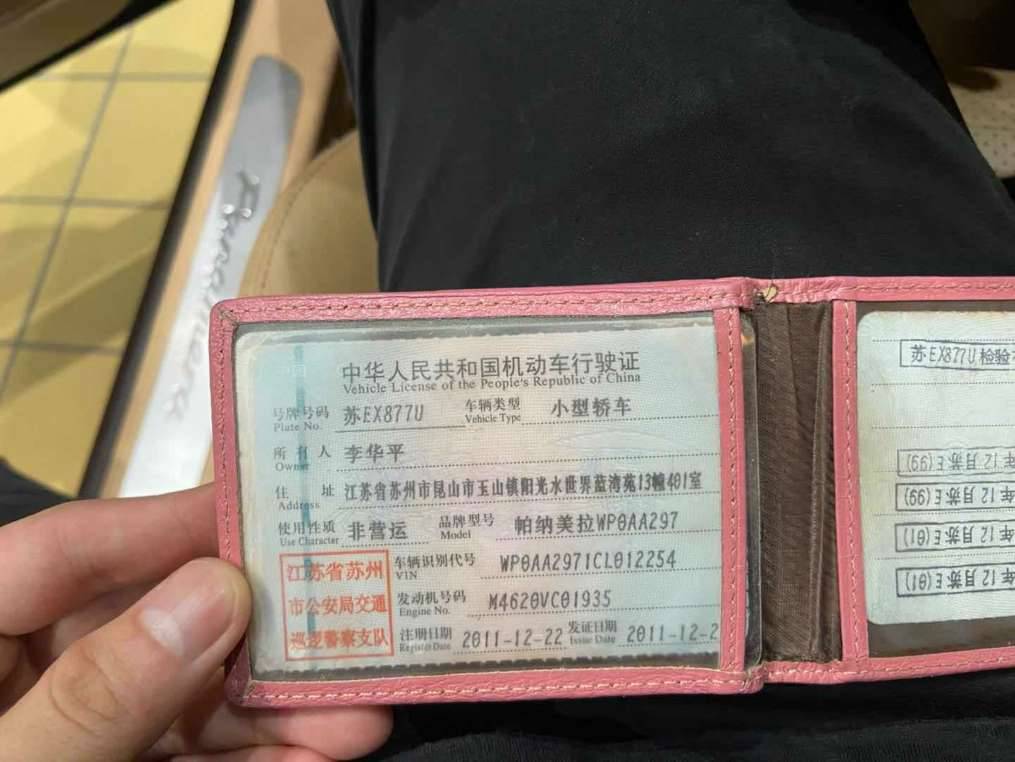 Panamera
中华人民共和国机动车行驶证
Vehicle License of the People's Republic of China
号牌号码 苏EX877U 车辆类型 小型轿车
Plate No. Vehicle Type
所有人 李华平
Owner
住址 江苏省苏州市昆山市玉山镇阳光水世界蓝湾苑13幢401室
Address
使用性质 非营运 品牌型号 帕纳美拉WP0AA297
Use Character Model
江苏省苏州
市公安局交通
巡逻警察支队
车辆识别代号 WP0AA2971CL012254
VIN
发动机号码 M4620VC01935
Engine No.
注册日期 2011-12-22 发证日期 2011-12-2
Register Date Issue Date
苏EX877U 检验
年12月苏E(99)
年12月苏E(99)
年12月苏E(01)
年12月苏E(01)